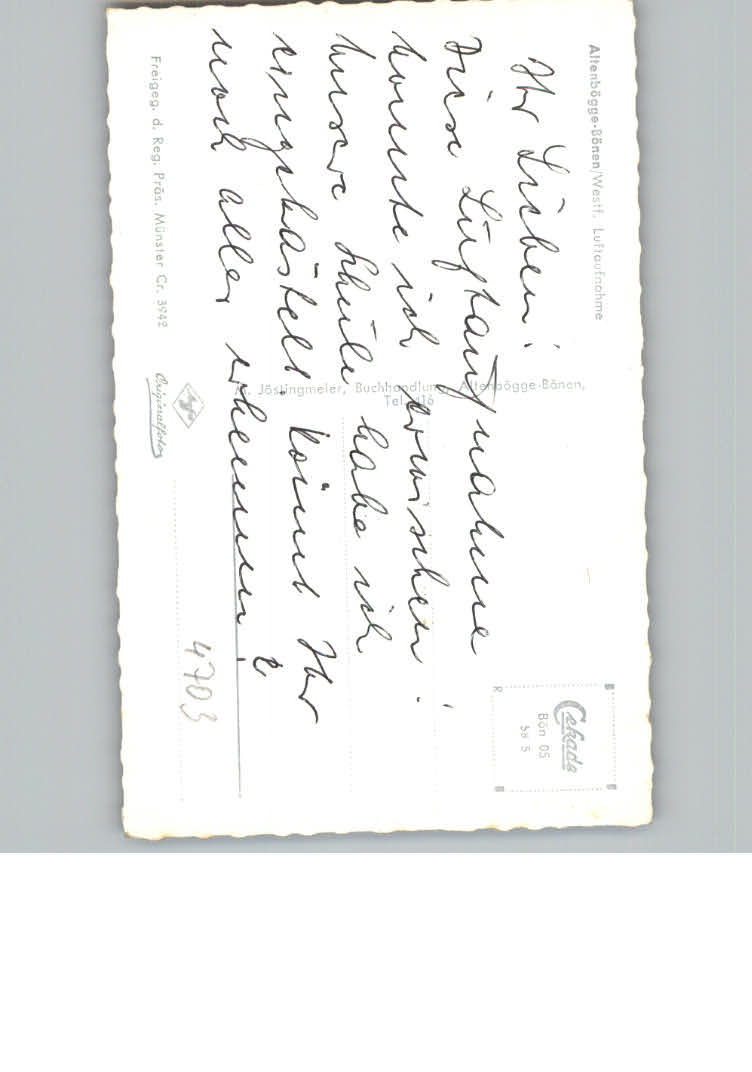 Altenbögge-Bönen/Westf. Luftaufnahme
Ihr Lieben!
Diese Luftaufnahme
konnte ich erwischen!
Unsere Schule habe ich
eingekästelt. Könnt Ihr
noch alles erkennen?
Cekade
Bön 05
58 5
M. Jöstingmeier, Buchhandlung, Altenbögge-Bönen,
Tel. 416
Freigeg. d. Reg. Präs. Münster Cr. 3942
Agfa
Originalfoto
4703